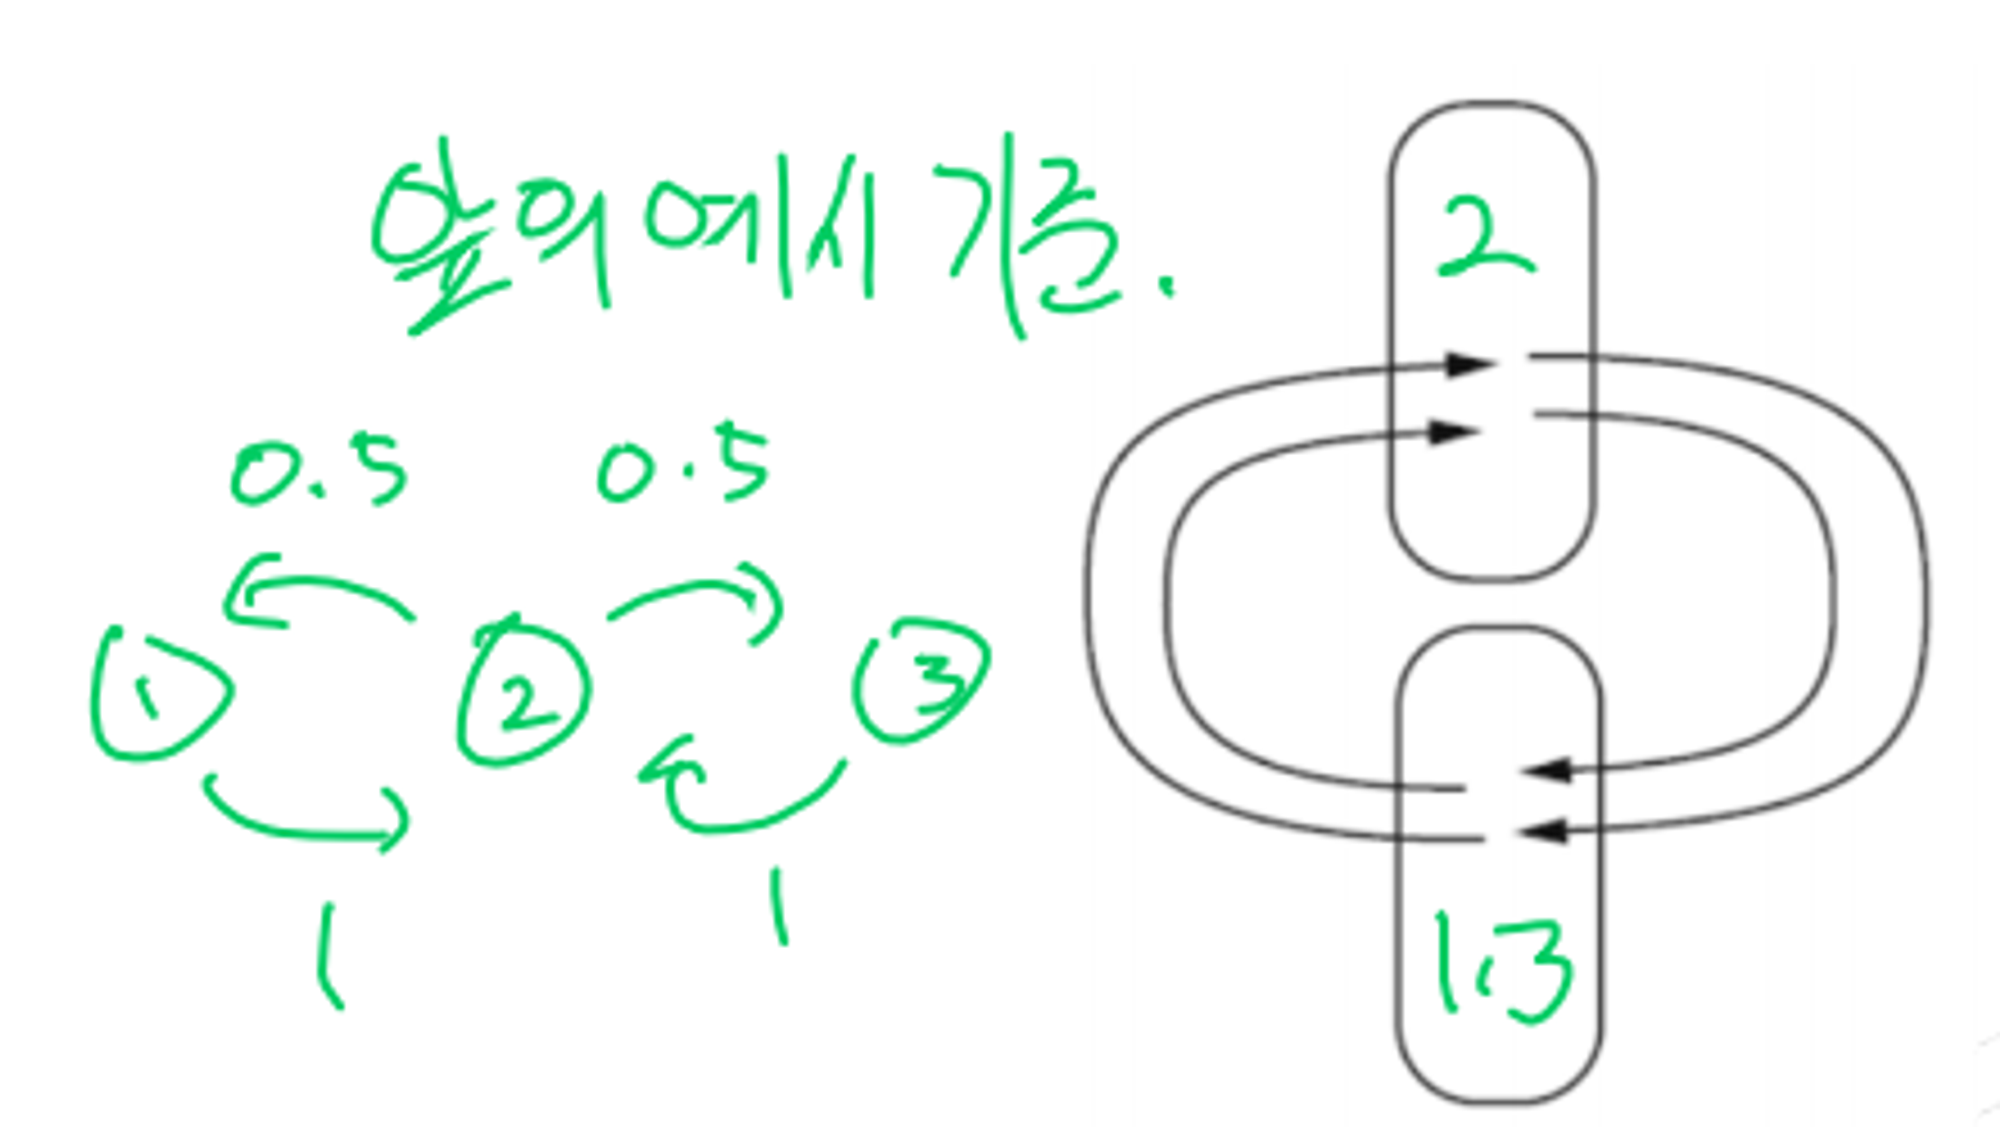 위의 예시 기준.
0.5 0.5
1 2 3
1 1
2
1,3